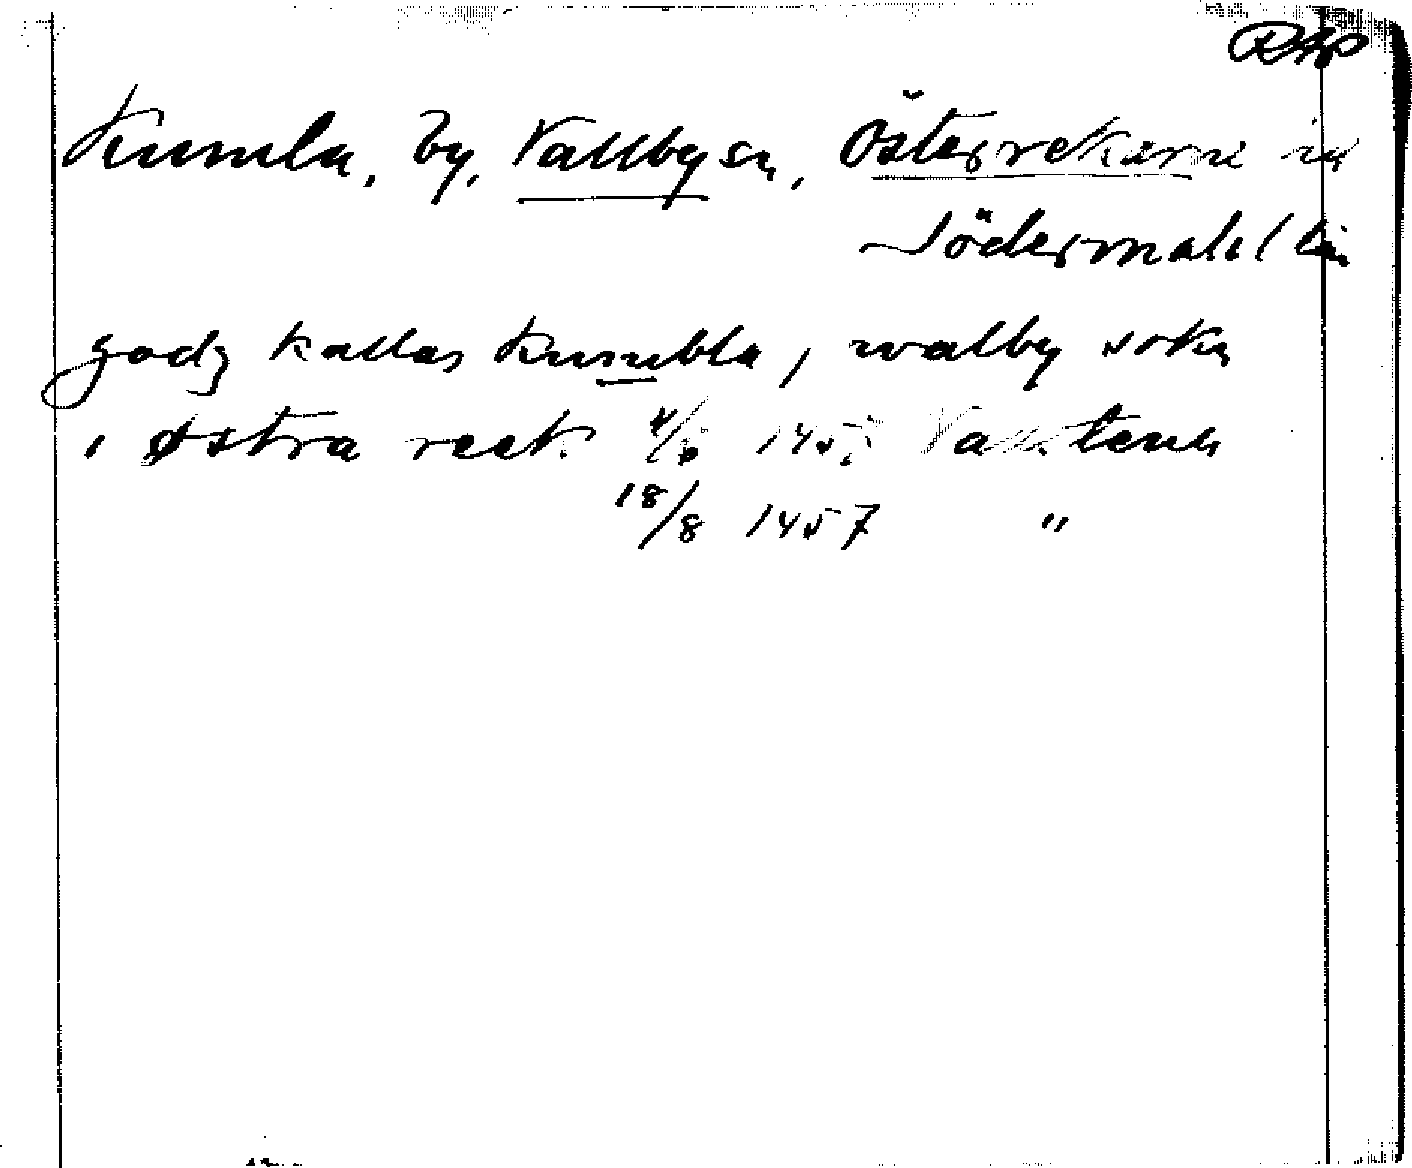 RAP
Kumla, by, Vallby sn, Österrekarne hd
Södermanl. län
godz kallas Kumbla, walby sokn
i østra reek. 4/8 145 Vadstena
18/8 1457 "